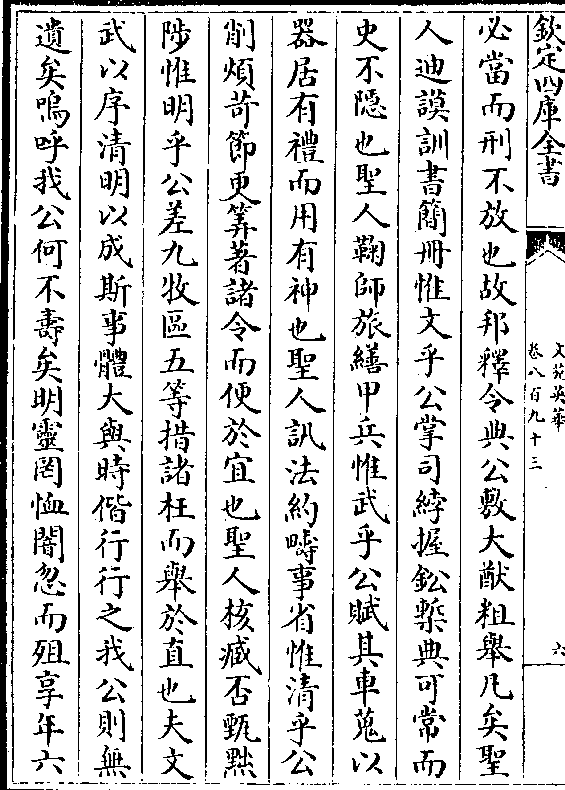 欽定四庫全書
文苑英華
卷八百九十三
六
必當而刑不放也故邦釋令典公敷大猷粗舉凡矣聖
人迪謨訓書簡冊惟文乎公掌司綍握鈆槧典可常而
史不隱也聖人鞠師旅繕甲兵惟武乎公賦其車蒐以
器居有禮而用有神也聖人訊法約疇事省惟清乎公
削煩苛節更筭著諸令而便於宜也聖人核臧否甄黜
陟惟明乎公差九牧區五等措諸枉而舉於直也夫文
武以序清明以成斯事體大與時偕行行之我公則無
遺矣嗚呼我公何不壽矣明靈罔恤闇忽而殂享年六